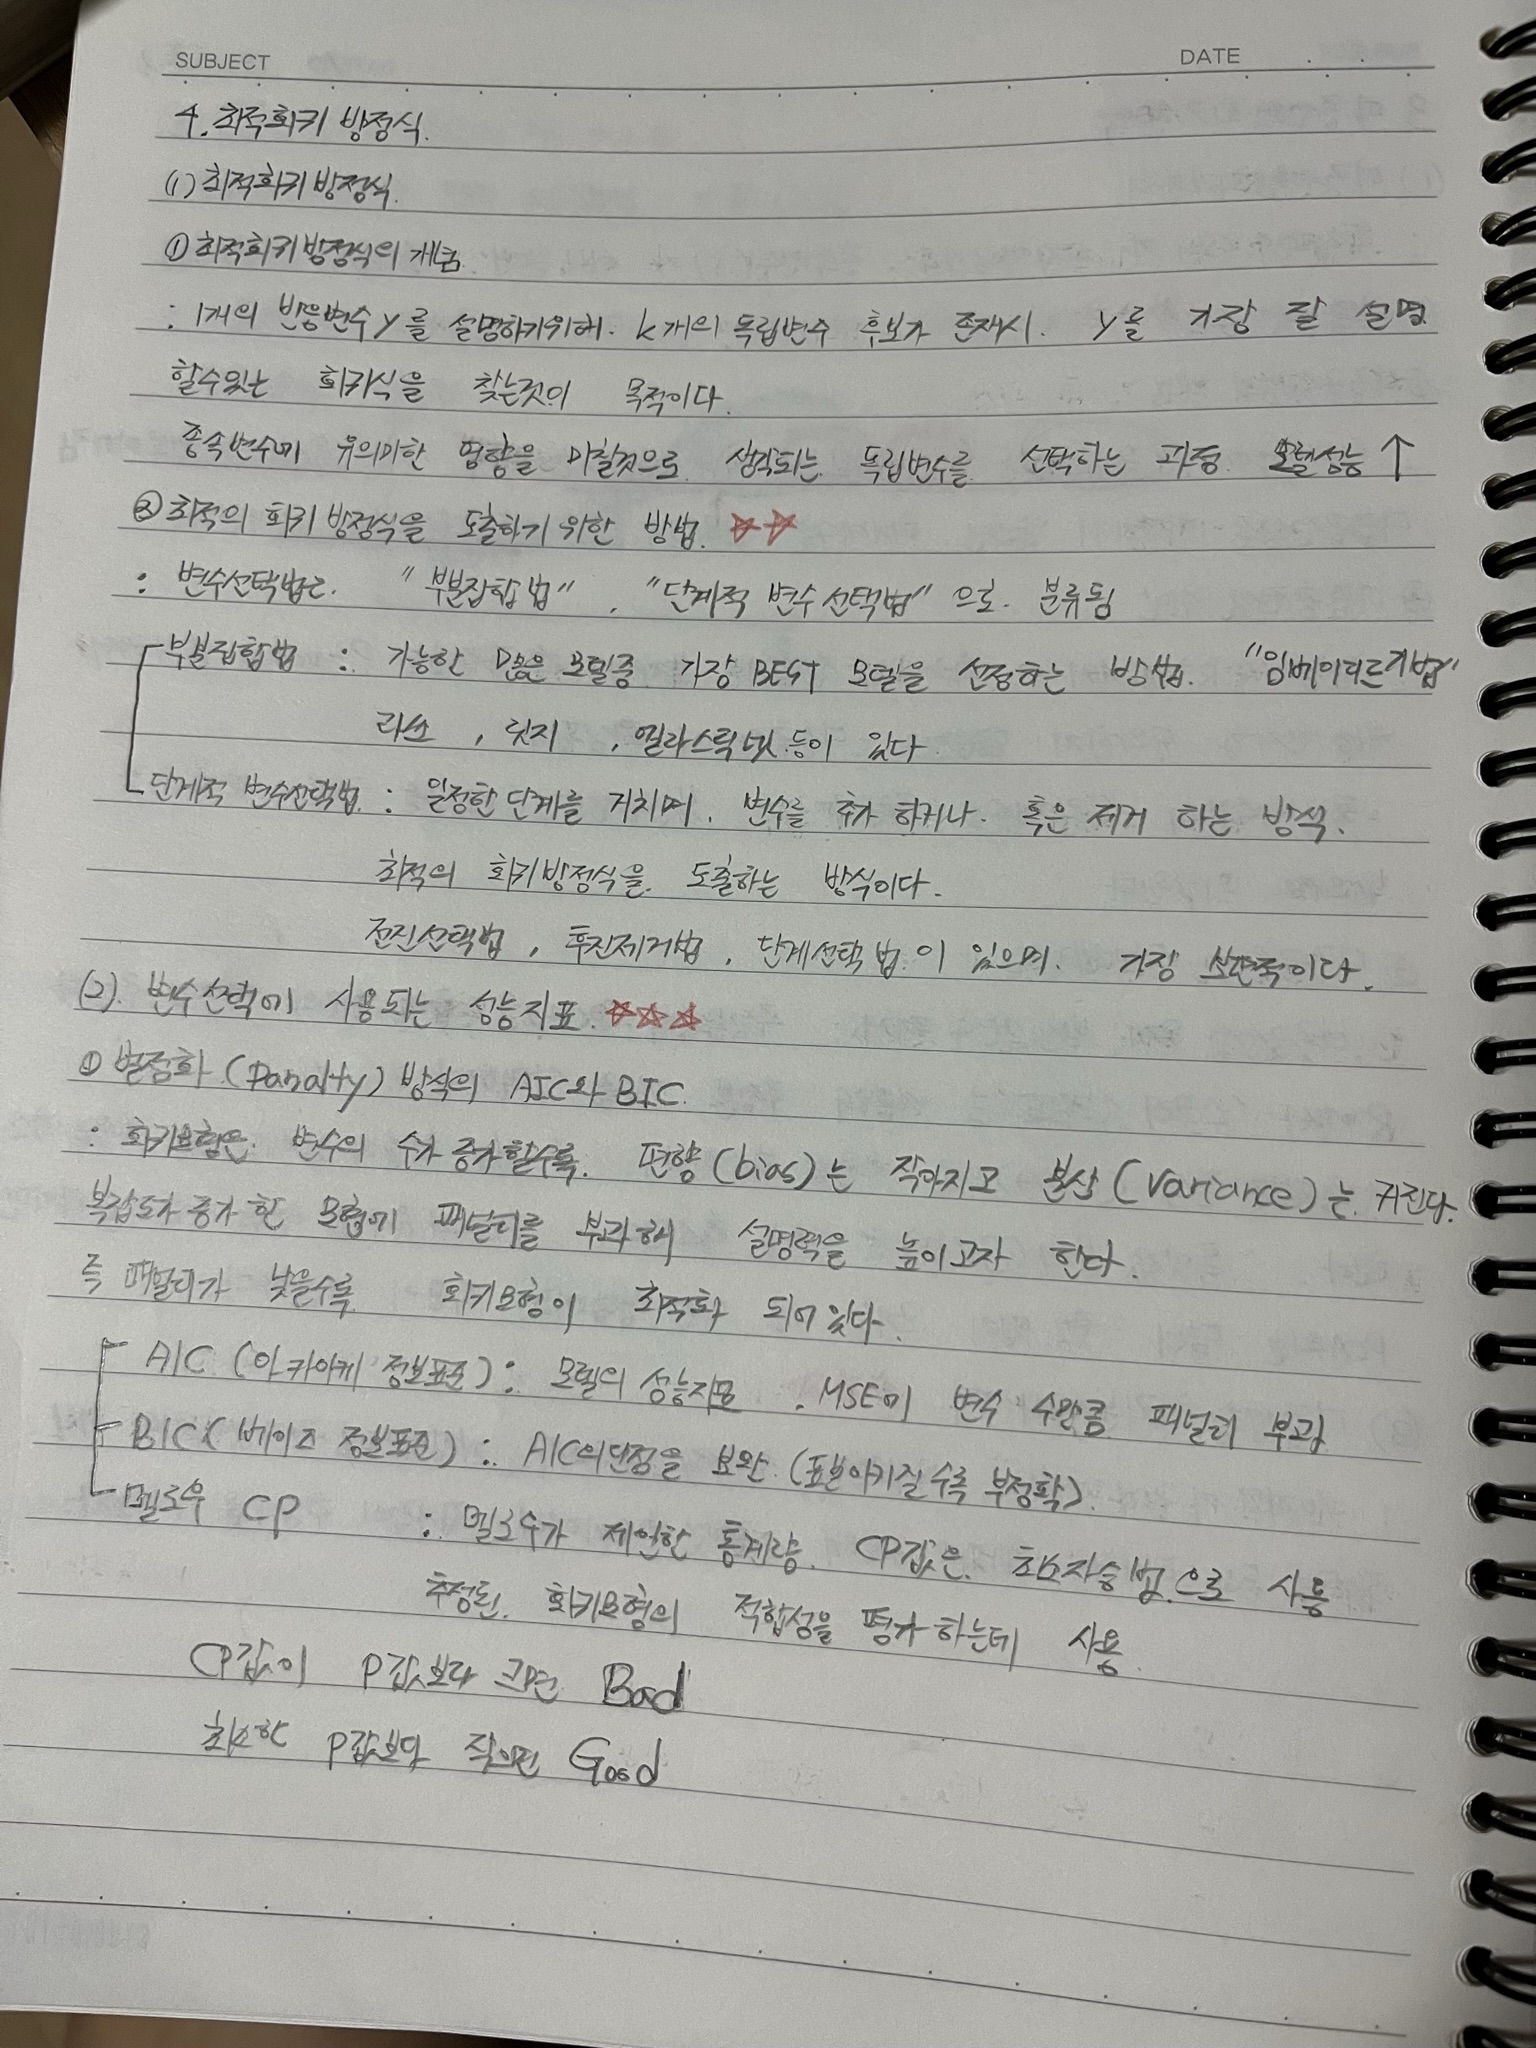 SUBJECT
DATE
4. 최적회귀 방정식.
(1) 최적회귀 방정식.
① 최적회귀 방정식의 개념.
: 1개의 반응변수 y를 설명하기위해. k개의 독립변수 후보가 존재시. y를 가장 잘 설명
할수있는 회귀식을 찾는것이 목적이다.
종속변수에 유의미한 영향을 미칠것으로 생각되는 독립변수를 선택하는 과정. 모델성능 ↑
② 최적의 회귀 방정식을 도출하기 위한 방법. ☆☆
: 변수선택법은. "부분집합법", "단계적 변수 선택법"으로. 분류됨
부분집합법 : 가능한 많은 모델중 가장 BEST 모델을 선정하는 방법. "임베디드기법"
라쏘, 릿지, 엘라스틱넷 등이 있다.
단계적 변수선택법 : 일정한 단계를 거치며. 변수를 추가 하거나. 혹은 제거 하는 방식.
최적의 회귀방정식을. 도출하는 방식이다.
전진선택법, 후진제거법, 단계선택법.이 있으며. 가장 보편적이다.
(2). 변수 선택에 사용되는 성능지표. ☆☆☆
① 벌점화 (Panalty) 방식의 AIC와 BIC.
: 회귀모형은. 변수의 수가 증가할수록. 편향(bias)는 작아지고 분산(Variance)는. 커진다.
복잡도가 증가 한 모형에 패널티를 부과해 설명력을 높이고자 한다.
즉 패널티가 낮을수록 회귀모형이 최적화 되어있다.
AIC (아카이케 정보표준) : 모델의 성능지표. MSE에 변수 수만큼 패널티 부과
BIC (베이즈 정보표준) : AIC의단점을 보완.(표본이커질수록 부정확).
멜로우 CP : 멜로우가 제안한 통계량. CP값은. 최소자승법.으로 사용
추정된. 회귀모형의 적합성을 평가하는데 사용.
CP값이 P값보다 크면 Bad
최소한 P값보다 작으면 Good